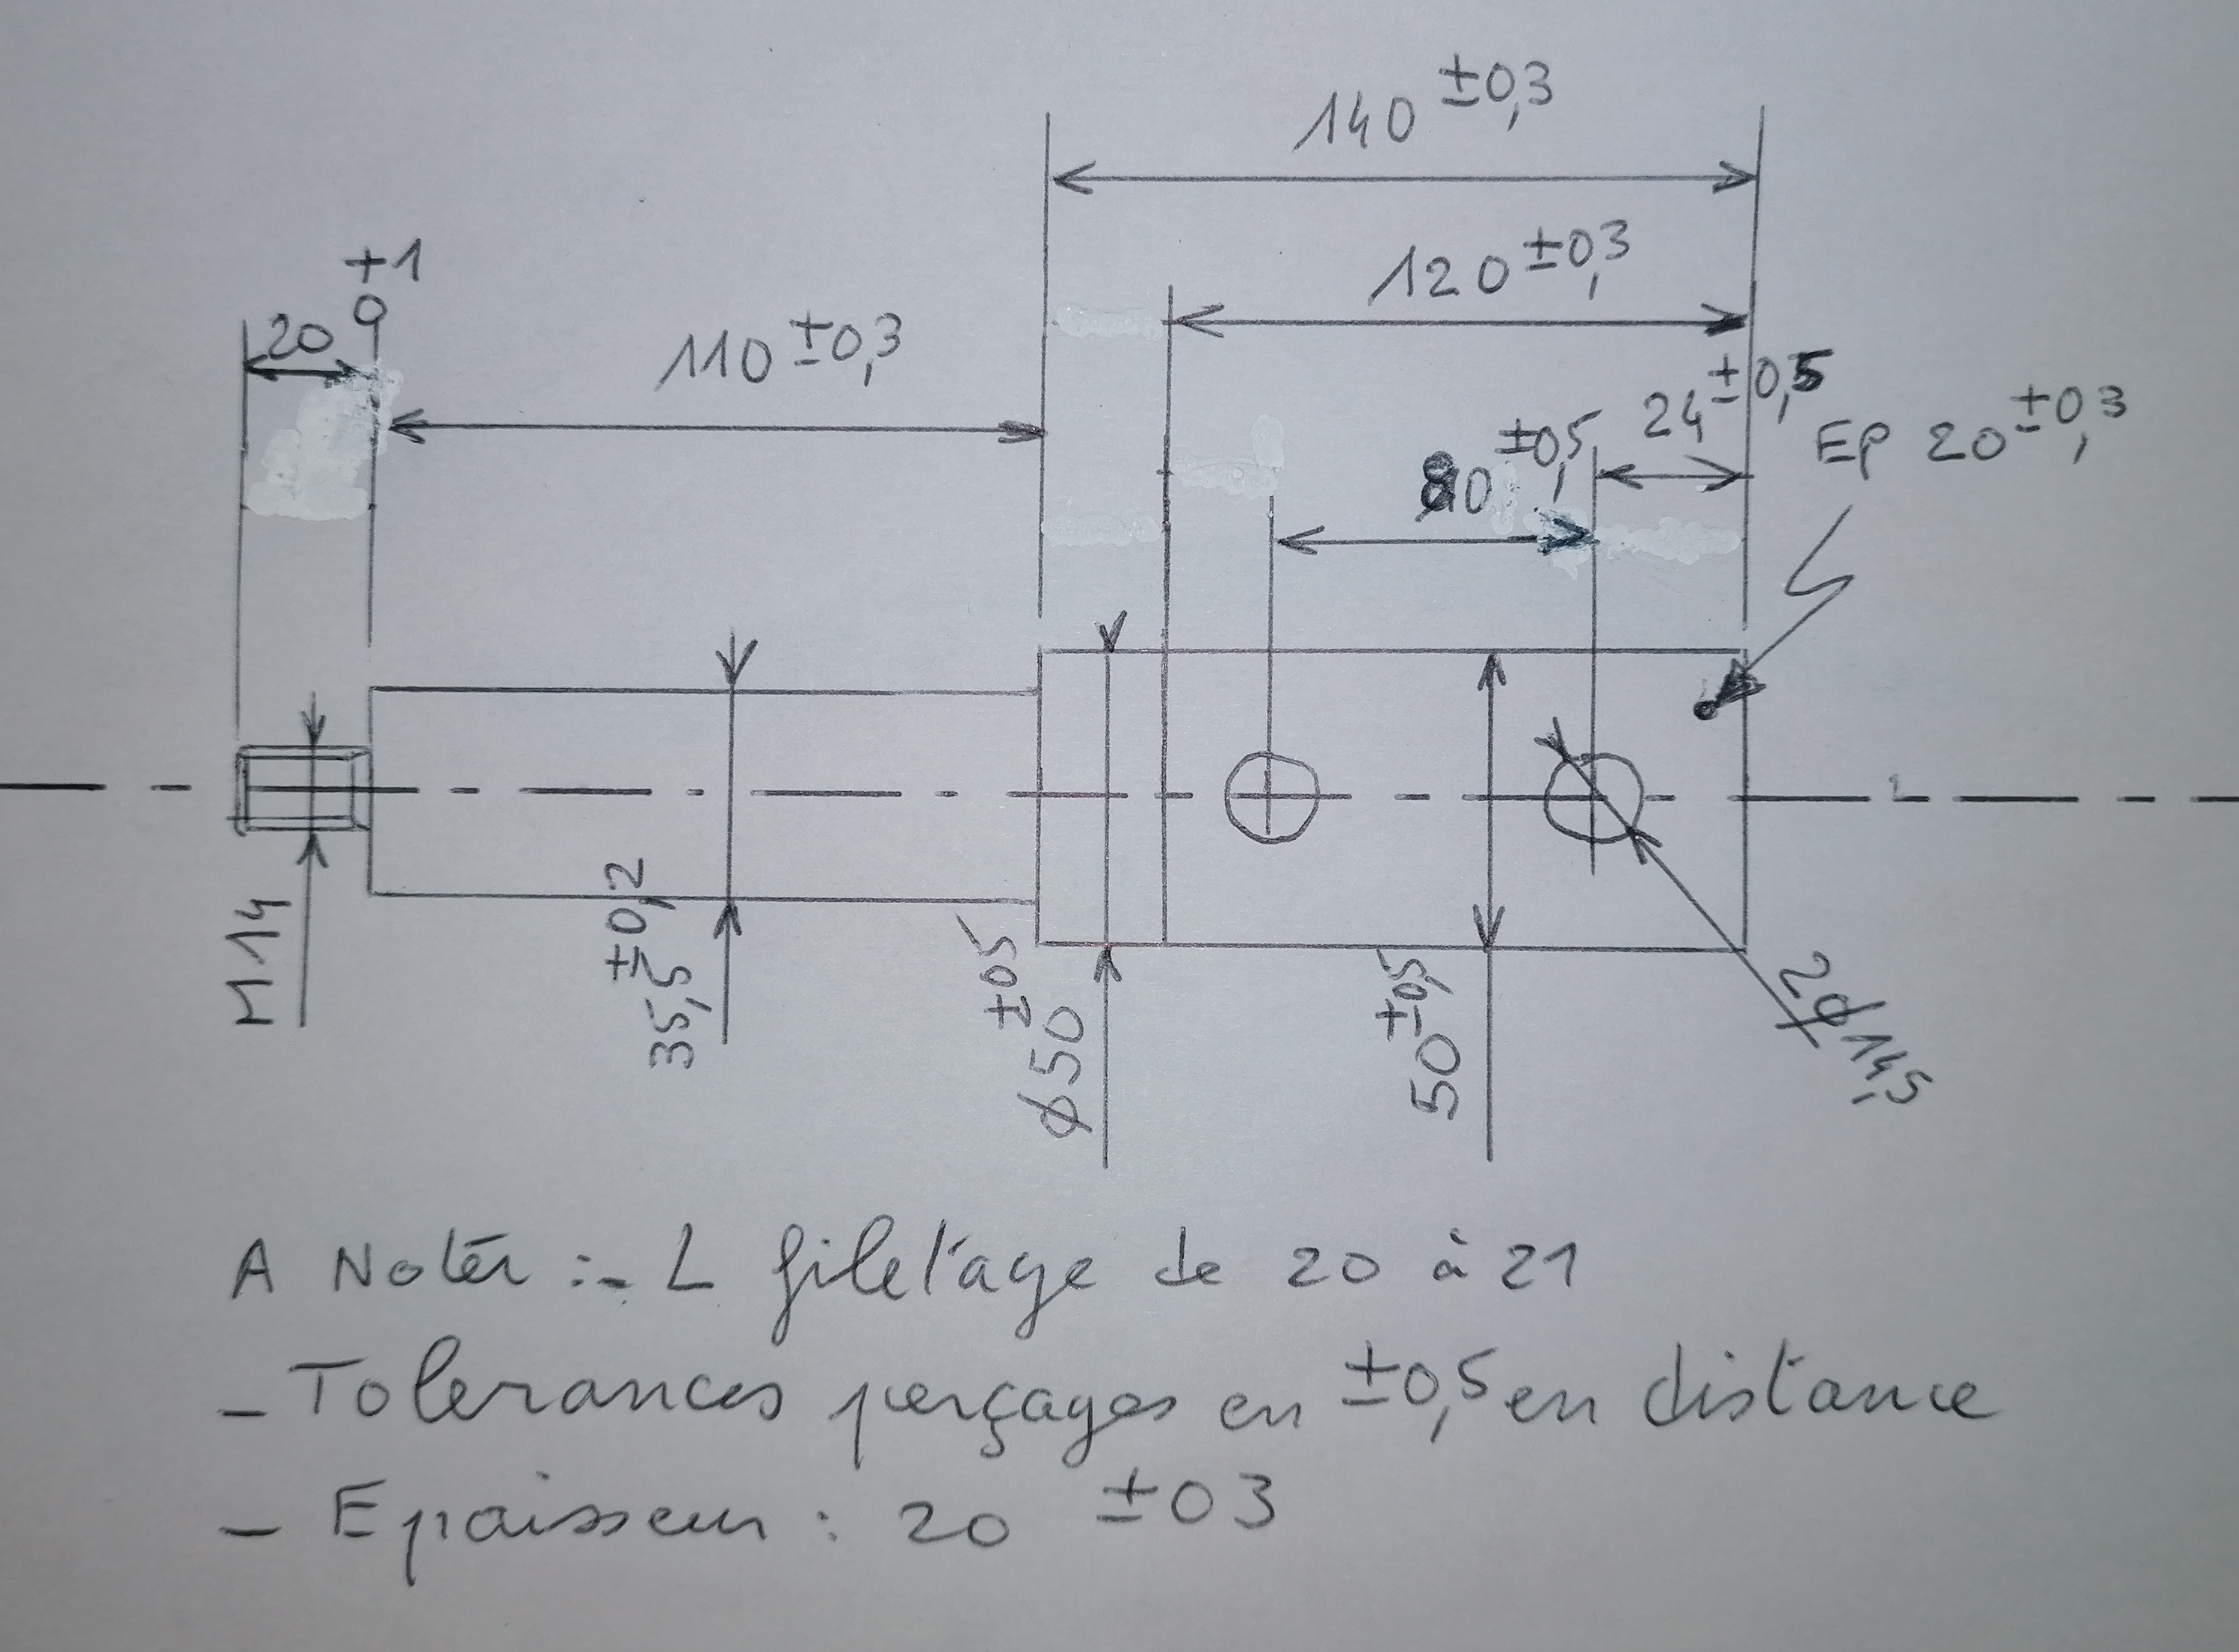 140 ±0,3
120 ±0,3
+1
0
20
110 ±0,3
24 ±0,5
80 ±0,5
EP 20 ±0,3
M14
35,5 ±0,2
ϕ50 ±05
50 ±0,5
2ϕ14,5
A Noter :- L filetage de 20 à 21
- Tolerances perçages en ±0,5 en distance
- Epaisseur : 20 ±03